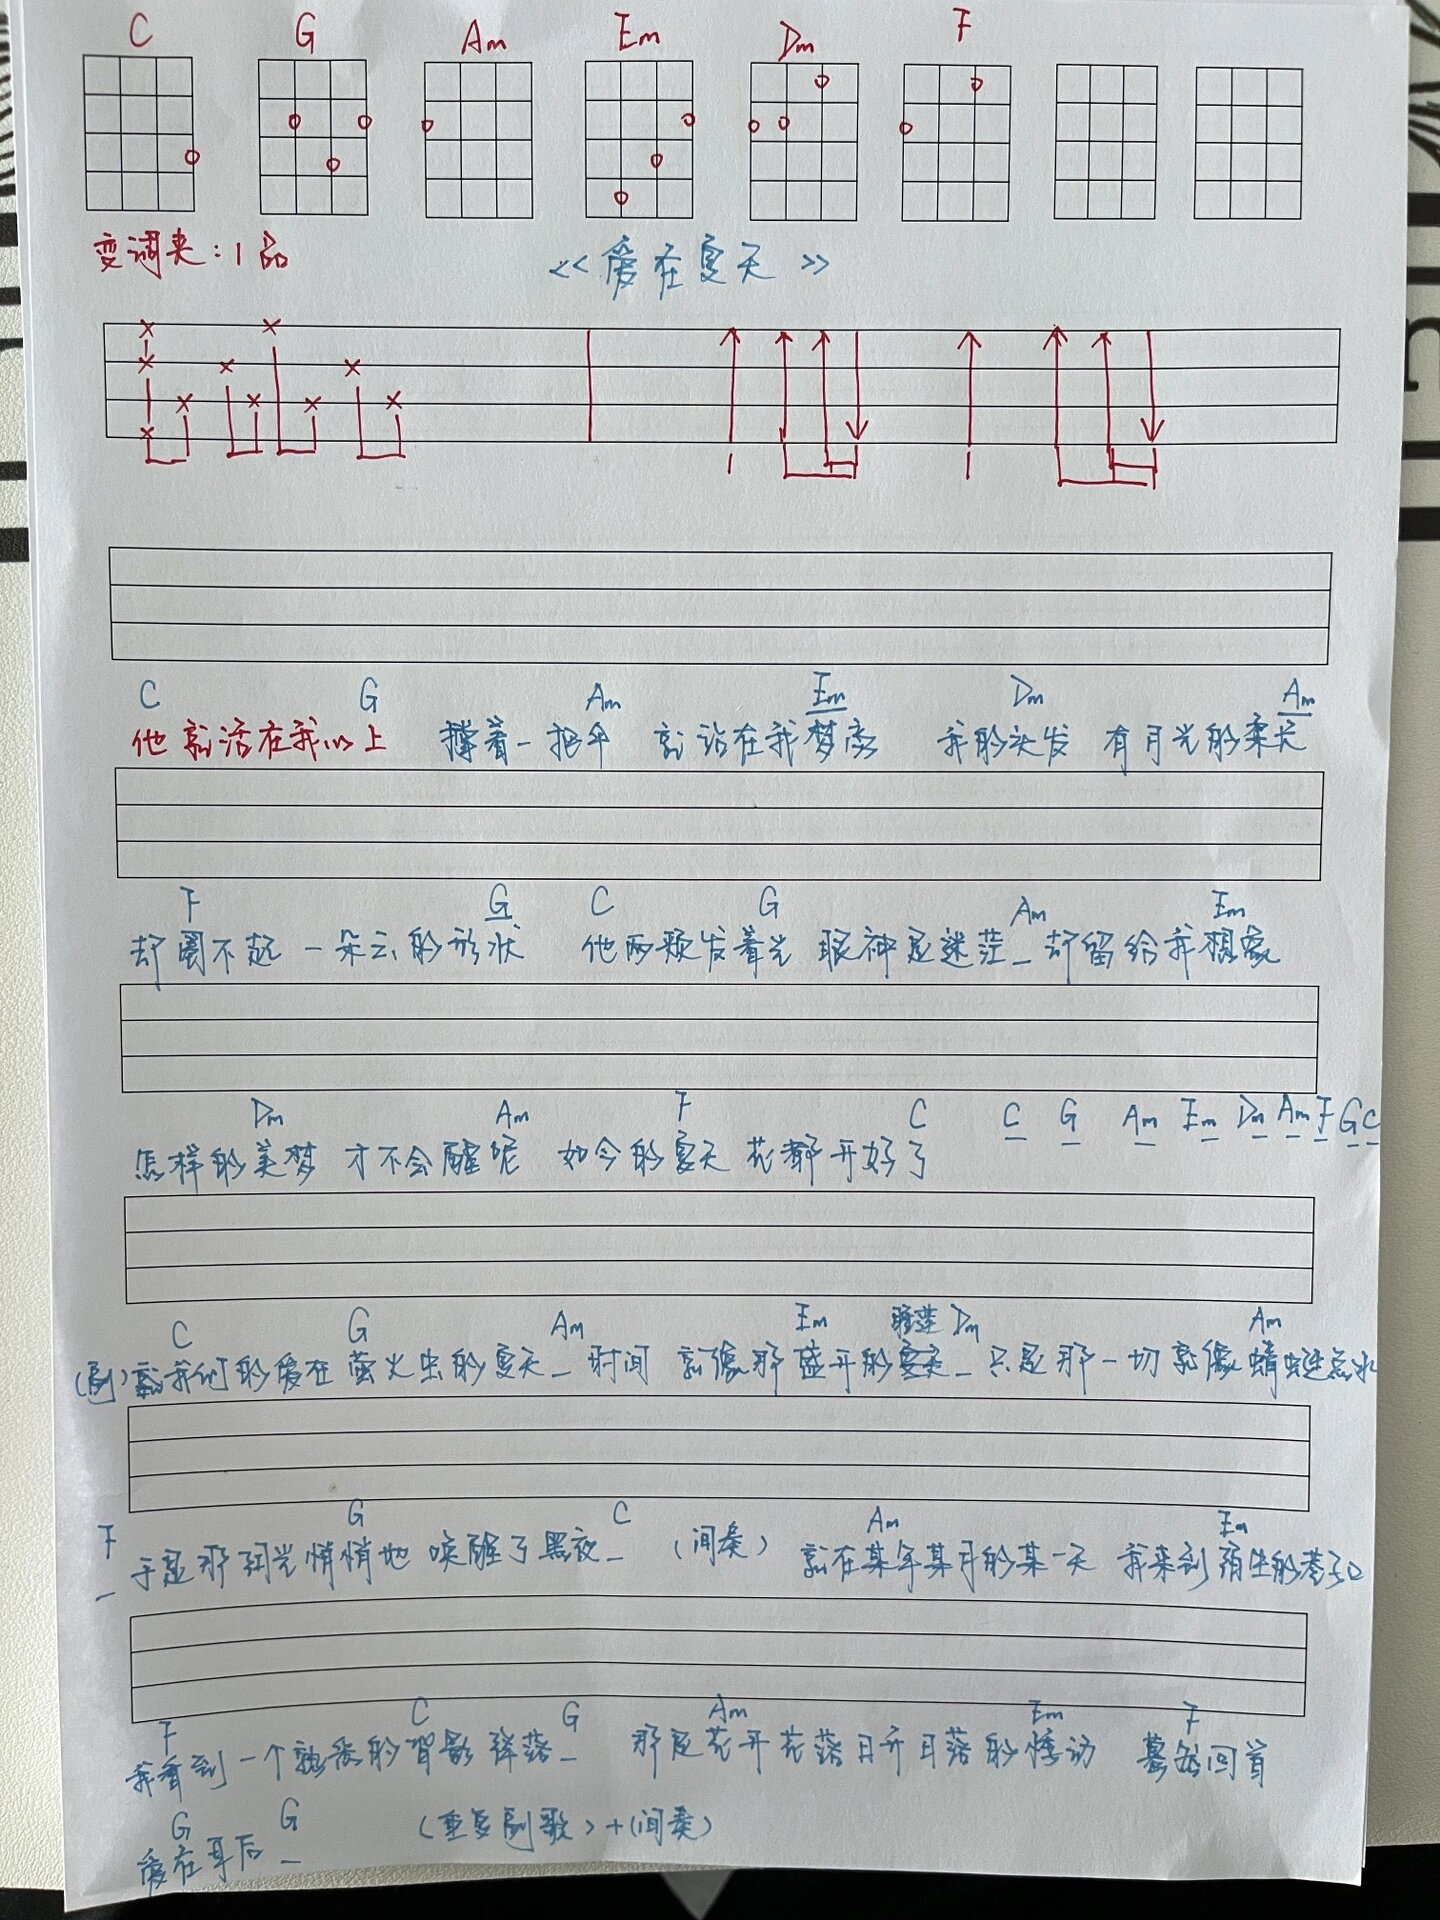 C G Am Em Dm F
变调夹：1品
<<爱在夏天>>
C G Am Em Dm Am
他就活在我以上 撑着一把伞 就站在我梦旁 我的头发 有月光的柔长
F G C G Am Em
却圈不起 一朵云的形状 他两颊发着光 眼神是迷茫_ 却留给我想象
Dm Am F C C G Am Em Dm Am F G C
怎样的美梦 才不会醒呢 如今的夏天 花都开好了
C G Am Em 睡莲 Dm Am
(副) 我们的爱在萤火虫的夏天_ 时间 就像那盛开的_ 只是那一切就像蜻蜓点水
F G C Am Em
_ 于是那烛光悄悄地 唤醒了黑夜_ (间奏) 就在某年某月的某一天 我来到陌生的巷子口
F C G Am Em F
我看到一个熟悉的背影 降落_ 那是花开花落日升日落的悸动 蓦然回首
G G
爱在耳后_ (重复副歌)+(间奏)